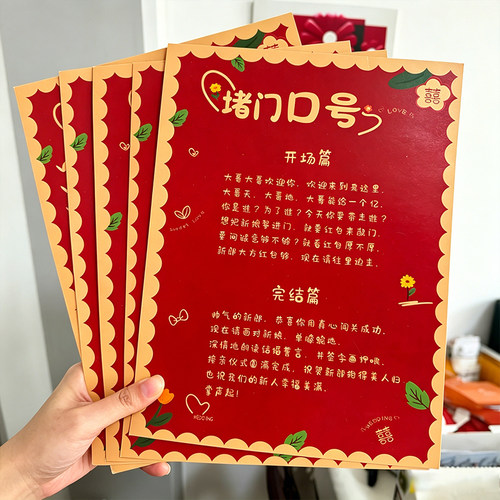 堵门口号
LOVE
囍
开场篇
大哥大哥欢迎你,欢迎来到是这里,
大哥天、大哥地、大哥能给一个亿.
你是谁?为了谁?今天你要带走谁?
想把新娘娶进门,就要红包来敲门.
要问诚意够不够?就看红包厚不厚.
新郎大方红包够,现在请往里边走.
完结篇
帅气的新郎,恭喜你用真心闯关成功,
现在请面对新娘,单膝跪地,
深情地朗读结婚誓言,并签字画押哦.
接亲仪式圆满完成,祝贺新郎抱得美人归
也祝我们的新人幸福美满,
掌声起!
WEDDING
WEDDING
囍